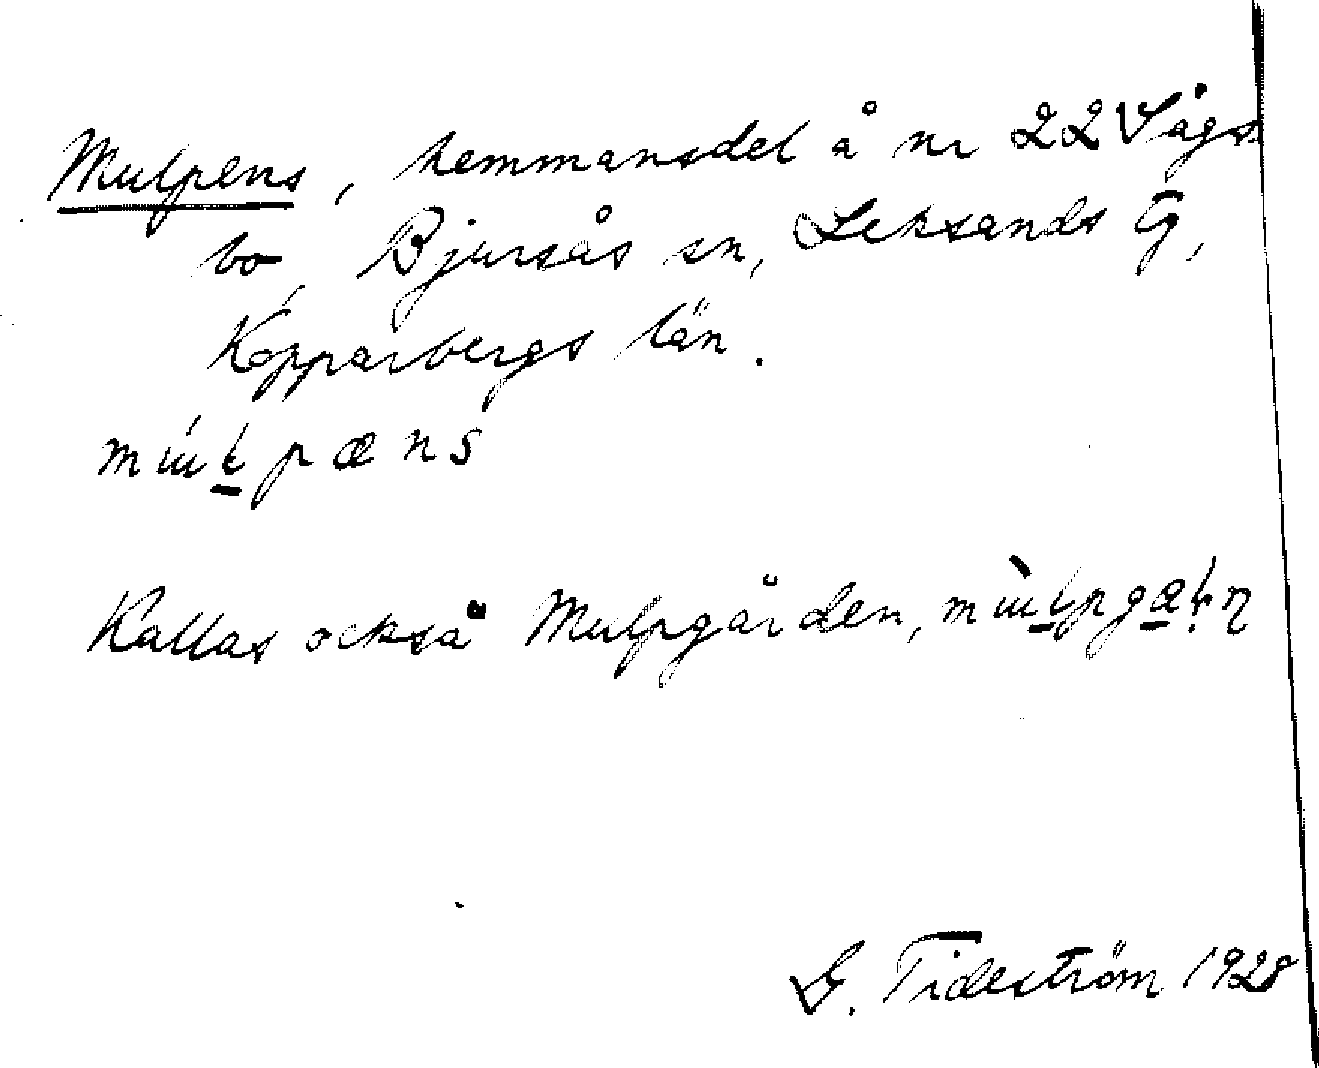 Mulpens, hemmansdel å nr 22 Sågs
bo, Bjursås sn, Leksands G,
Kopparbergs län.
Kallas också Mulpgården,
G. Tideström 1928